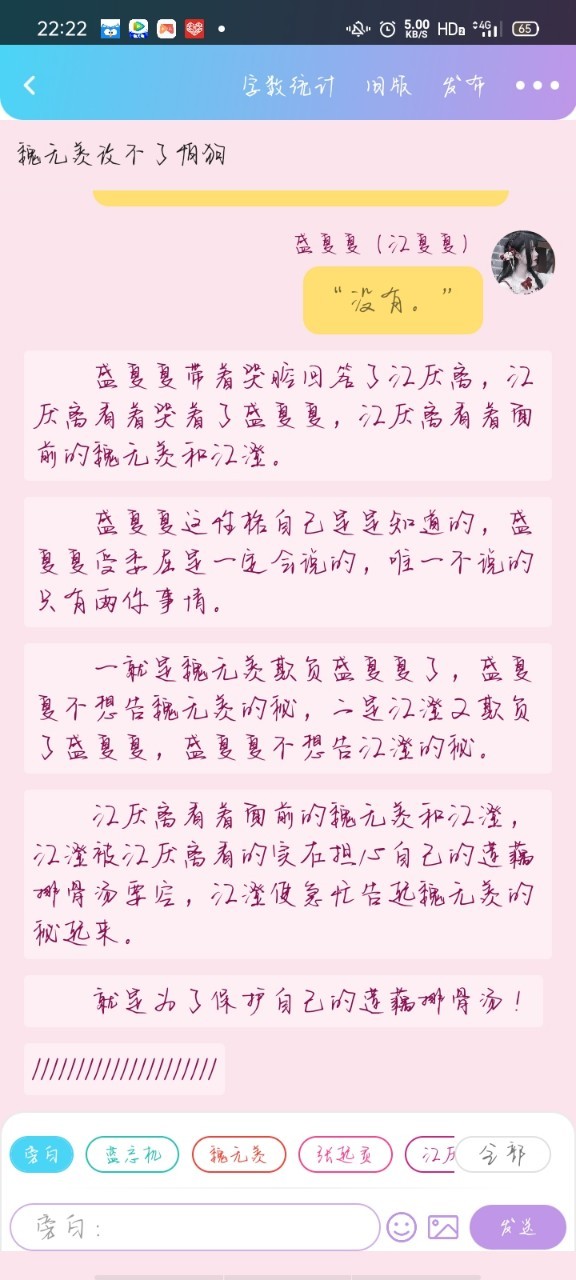 22:22
5.00
KB/S
HD
4G
65
字数统计 旧版 发布
魏无羡改不了怕狗
盛夏夏（江夏夏）
“没有。”
盛夏夏带着哭腔回答了江厌离，江
厌离看着哭着了盛夏夏，江厌离看着面
前的魏无羡和江澄。
盛夏夏这性格自己是是知道的，盛
夏夏受委屈是一定会说的，唯一不说的
只有两件事情。
一就是魏无羡欺负盛夏夏了，盛夏
夏不想告魏无羡的秘，二是江澄又欺负
了盛夏夏，盛夏夏不想告江澄的秘。
江厌离看着面前的魏无羡和江澄，
江澄被江厌离看的实在担心自己的莲藕
排骨汤要空，江澄便急忙告起魏无羡的
秘起来。
就是为了保护自己的莲藕排骨汤！
/////////////////////
旁白 蓝忘机 魏无羡 张起灵 江厌 全部
旁白： 发送